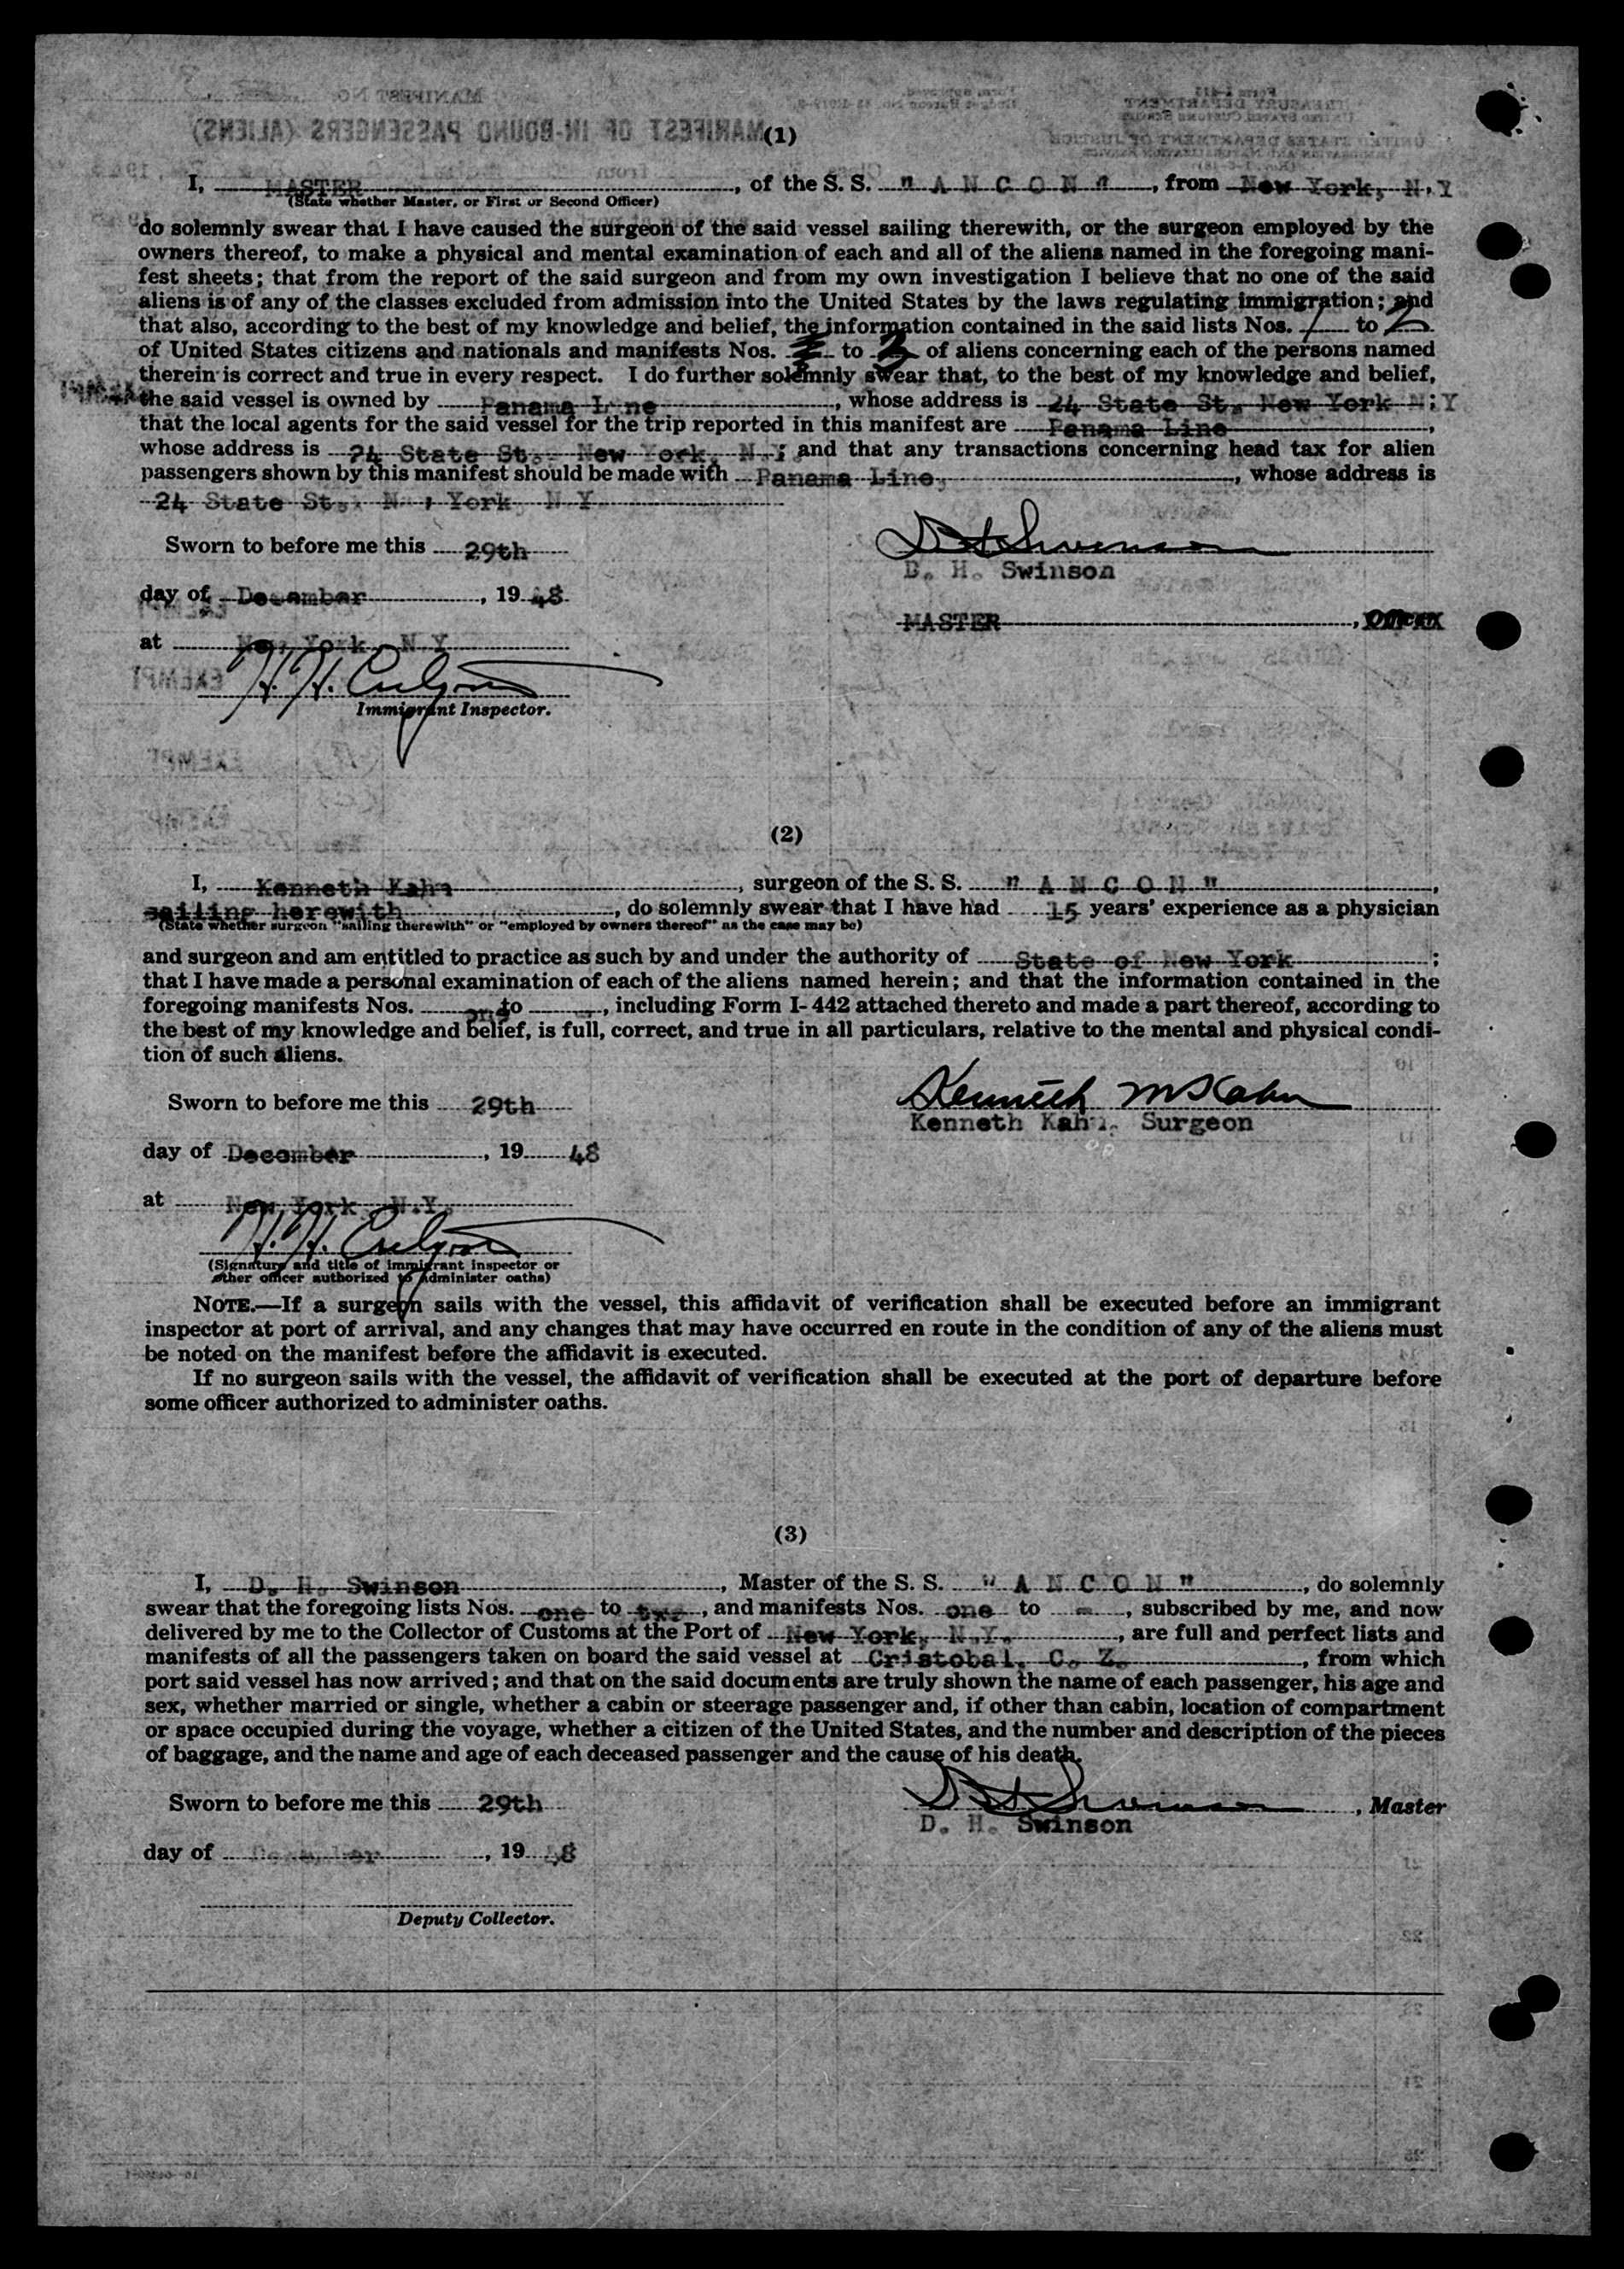 (1)
I, MASTER, of the S. S. " A N C O N ", from New York, N.Y
(State whether Master, or First or Second Officer)
do solemnly swear that I have caused the surgeon of the said vessel sailing therewith, or the surgeon employed by the
owners thereof, to make a physical and mental examination of each and all of the aliens named in the foregoing mani-
fest sheets; that from the report of the said surgeon and from my own investigation I believe that no one of the said
aliens is of any of the classes excluded from admission into the United States by the laws regulating immigration; and
that also, according to the best of my knowledge and belief, the information contained in the said lists Nos. 1 to 2
of United States citizens and nationals and manifests Nos. to of aliens concerning each of the persons named
therein is correct and true in every respect. I do further solemnly swear that, to the best of my knowledge and belief,
the said vessel is owned by Panama Line, whose address is 24 State St, New York N;Y
that the local agents for the said vessel for the trip reported in this manifest are Panama Line,
whose address is 24 State St., New York, N.Y and that any transactions concerning head tax for alien
passengers shown by this manifest should be made with Panama Line, whose address is
24 State St., York N Y
Sworn to before me this 29th
D. H. Swinson
day of December, 1948
MASTER, Officer
at New York N Y
Immigrant Inspector.
(2)
I, Kenneth Kahn, surgeon of the S. S. " A N C O N ",
sailing herewith, do solemnly swear that I have had 15 years' experience as a physician
(State whether surgeon "sailing therewith" or "employed by owners thereof" as the case may be)
and surgeon and am entitled to practice as such by and under the authority of State of New York;
that I have made a personal examination of each of the aliens named herein; and that the information contained in the
foregoing manifests Nos. one to -, including Form I-442 attached thereto and made a part thereof, according to
the best of my knowledge and belief, is full, correct, and true in all particulars, relative to the mental and physical condi-
tion of such aliens.
Kenneth M Kahn
Sworn to before me this 29th
Kenneth Kahn, Surgeon
day of December, 19 48
at New York, N.Y.
(Signature and title of immigrant inspector or
other officer authorized to administer oaths)
NOTE.—If a surgeon sails with the vessel, this affidavit of verification shall be executed before an immigrant
inspector at port of arrival, and any changes that may have occurred en route in the condition of any of the aliens must
be noted on the manifest before the affidavit is executed.
If no surgeon sails with the vessel, the affidavit of verification shall be executed at the port of departure before
some officer authorized to administer oaths.
(3)
I, D. H. Swinson, Master of the S. S. " A N C O N ", do solemnly
swear that the foregoing lists Nos. one to two, and manifests Nos. one to -, subscribed by me, and now
delivered by me to the Collector of Customs at the Port of New York, N.Y., are full and perfect lists and
manifests of all the passengers taken on board the said vessel at Cristobal, C. Z., from which
port said vessel has now arrived; and that on the said documents are truly shown the name of each passenger, his age and
sex, whether married or single, whether a cabin or steerage passenger and, if other than cabin, location of compartment
or space occupied during the voyage, whether a citizen of the United States, and the number and description of the pieces
of baggage, and the name and age of each deceased passenger and the cause of his death.
Sworn to before me this 29th
, Master
D. H. Swinson
day of December, 19 48
Deputy Collector.